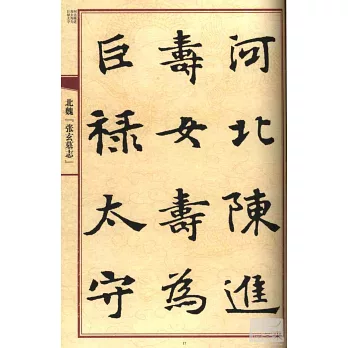 河北陳進
壽女壽為
巨禄太守
北魏『张玄墓志』
17